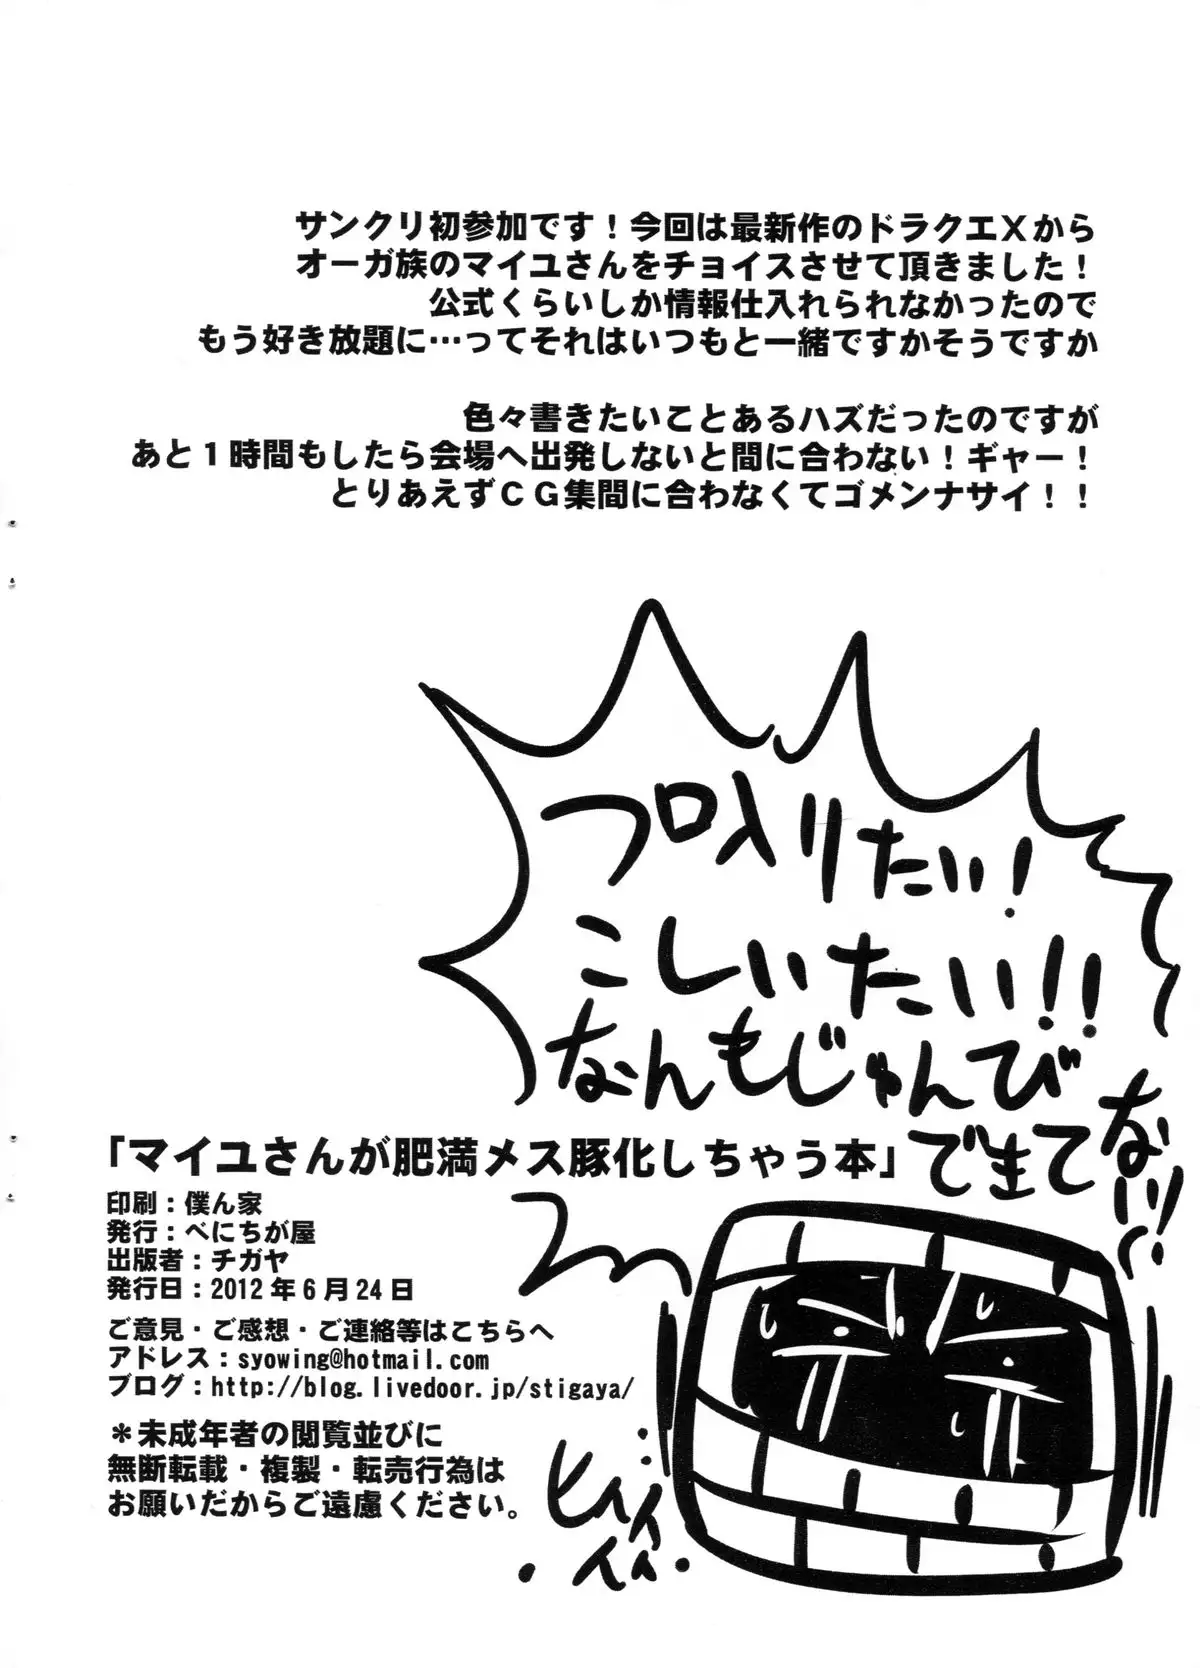 サンクリ初参加です！今回は最新作のドラクエⅩから
オーガ族のマイユさんをチョイスさせて頂きました！
公式くらいしか情報仕入れられなかったので
もう好き放題に…ってそれはいつもと一緒ですかそうですか
色々書きたいことあるハズだったのですが
あと１時間もしたら会場へ出発しないと間に合わない！ギャー！
とりあえずＣＧ集間に合わなくてゴメンナサイ！！
フロ入りたい！
こしいたい!!
なんもじゅんび
できて
ない!!
「マイユさんが肥満メス豚化しちゃう本」
印刷：僕ん家
発行：べにちが屋
出版者：チガヤ
発行日：2012年6月24日
ご意見・ご感想・ご連絡等はこちらへ
アドレス：syowing@hotmail.com
ブログ：http://blog.livedoor.jp/stigaya/
＊未成年者の閲覧並びに
無断転載・複製・転売行為は
お願いだからご遠慮ください。
ヒイイイイ